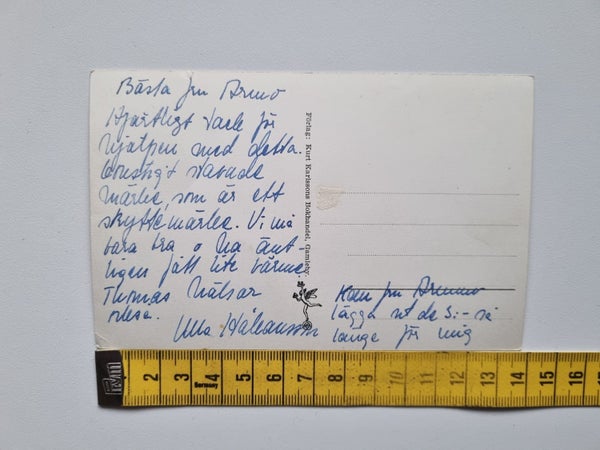 Bästa fru Armo
Hjärtligt tack för
hjälpen med detta.
konstigt vävde
märke, som är ett
skyttemärke. Vi må
bara bra o ha änt-
ligen fått lite värme.
Thomas hälsar
också.
Ulla Håkansson
Kan fru Armo
lägga ut de 5:- så
länge för mig
Förlag: Kurt Karlssons Bokhandel, Gamleby.
R/m 2 3 4 5 6 7 8 9 10 11 12 13 14 15 16
Germany